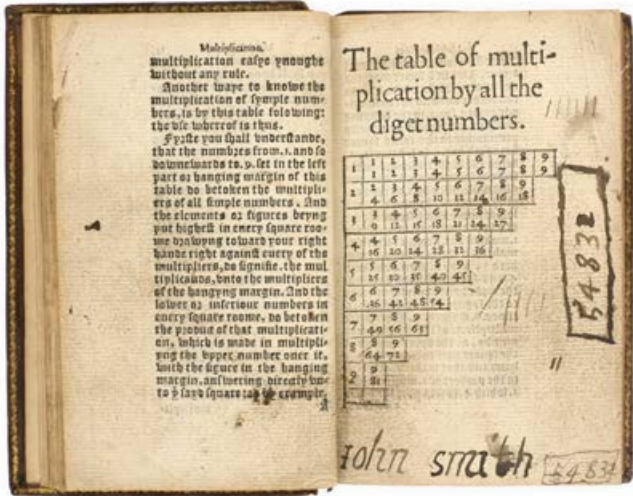 Multiplication.
multiplication easye ynoughe
without any rule.
Another waye to knowe the
multiplication of symple num-
bers, is by this table folowing:
the vse whereof is thus.
Fyrste you shall vnderstande,
that the numbers from .1. and so
downewards to .9. set in the left
part or hanging margin of this
table do betoken the multipli-
ers of all simple numbers. And
the elements or figures beyng
put highest in euery square roo-
me drawyng toward your right
hande right against euery of the
multipliers, do signifie. the mul
tiplicands, vnto the multipliers
of the hangyng margin. And the
lower or inferiour numbers in
euery square roome, do betoken
the produs of that multiplicati-
on, which is made in multipli-
yng the vpper number ouer it,
with the figure in the hanging
margin, answering directly vn-
to þ sayd square example.
The table of multi-
plication by all the
diget numbers.
1 1 2 3 4 5 6 7 8 9
1 2 3 4 5 6 7 8 9
2 2 3 4 5 6 7 8 9
4 6 8 10 12 14 16 18
3 3 4 5 6 7 8 9
9 12 15 18 21 24 27
4 4 5 6 7 8 9
16 20 24 28 32 36
5 5 6 7 8 9
25 30 35 40 45
6 6 7 8 9
36 42 48 54
7 7 8 9
49 56 63
8 8 9
64 72
9 9
81
54832
John smith
54832